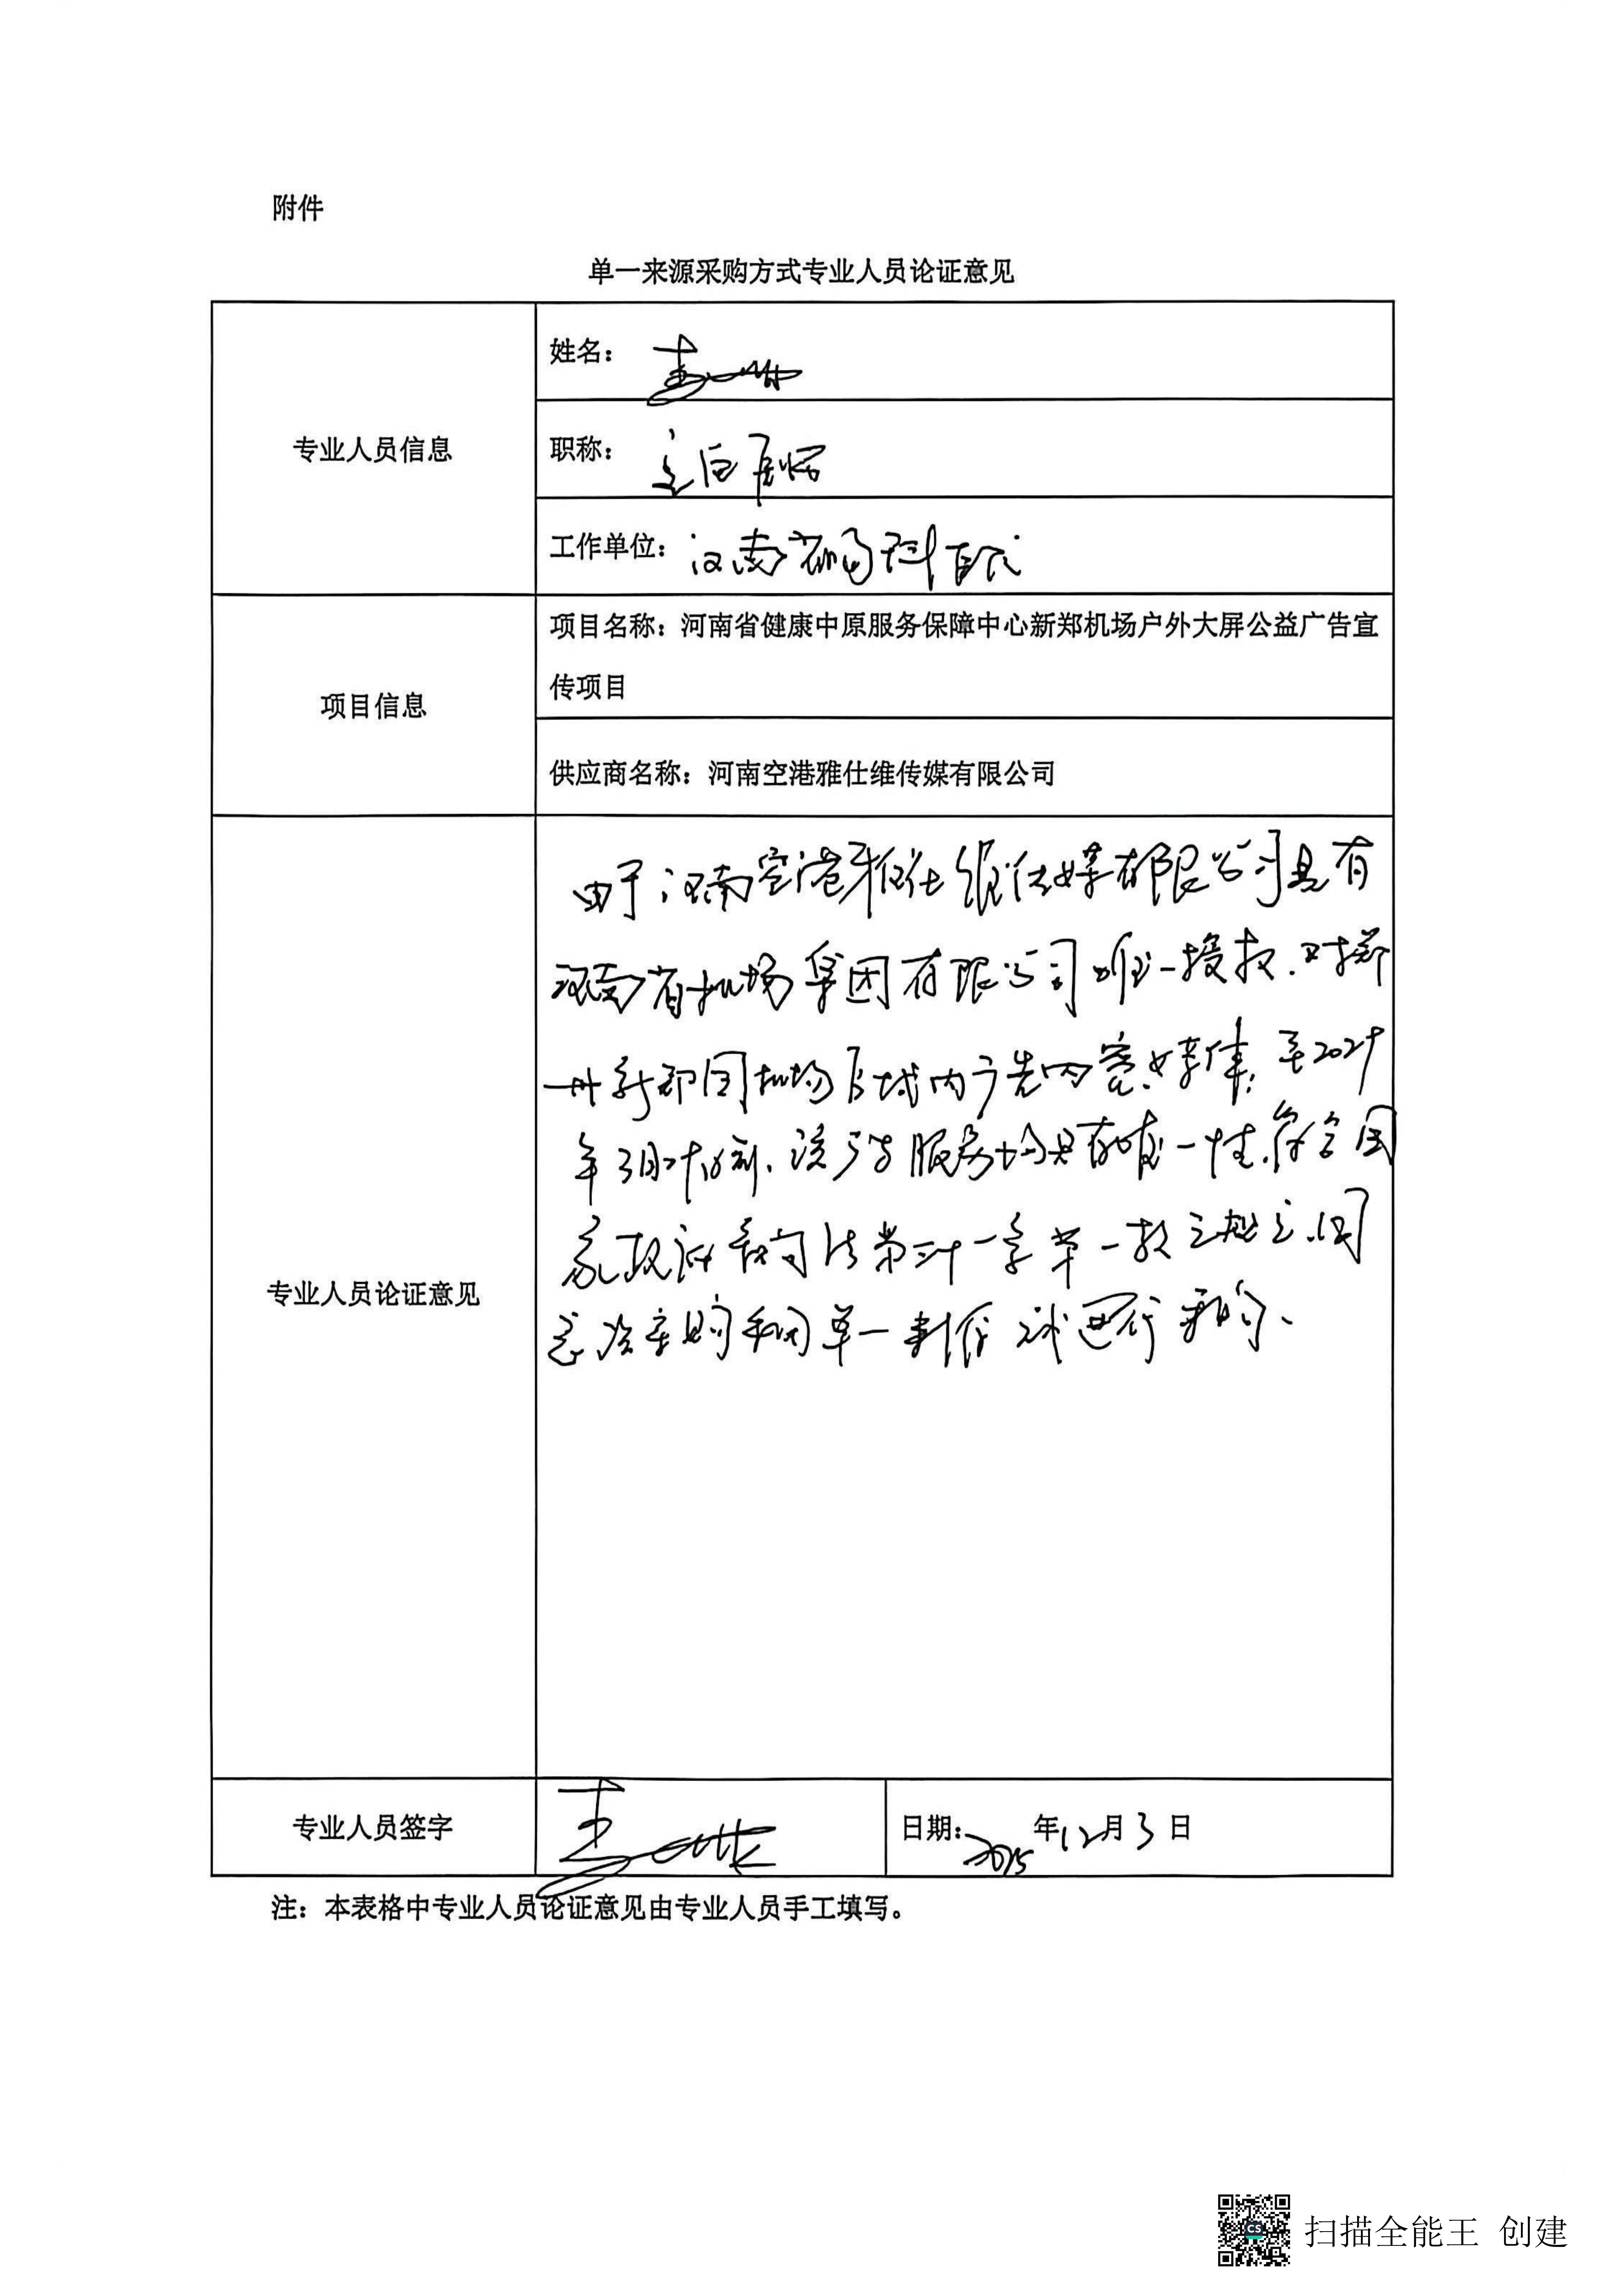 附件
单一来源采购方式专业人员论证意见
专业人员信息
姓名：
职称：
工作单位：河南省
项目信息
项目名称：河南省健康中原服务保障中心新郑机场户外大屏公益广告宣
传项目
供应商名称：河南空港雅仕维传媒有限公司
专业人员论证意见
由于河南空港雅仕维传媒有限公司具有
河南省机场集团有限公司唯一授权.对郑
州新郑国机场区域内广告内容、媒体，至202
年3月 该广告服务 具有唯一性.符合国
家政府采购法第三十一条第一款之规定.同
意 采购 单一 进行采购、
专业人员签字
日期：2025年12月3日
注：本表格中专业人员论证意见由专业人员手工填写。
扫描全能王 创建